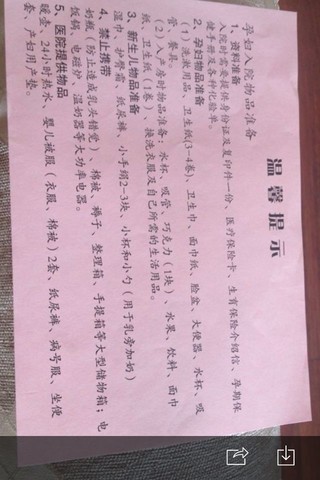 温馨提示
孕妇入院物品准备
1、资料准备
入院时需要提供身份证及复印件一份、医疗保险卡、生育保险介绍信、孕期保
健手册及各种化验单。
2、孕妇物品准备
（1）洗漱用品、卫生纸(3-4卷)、卫生巾、面巾纸、脸盆、大便器、水杯、吸
管、餐具。
（2）入产房时物品准备：水杯、吸管、巧克力（1块）、水果、饮料、面巾
纸、卫生纸（1卷）、换洗衣服及自己所需的生活用品。
3、新生儿物品准备
湿巾、护臀霜、纸尿裤、小手绢2-3块、小杯和小勺（用于乳旁加奶）
4、禁止携带
奶瓶（防止造成乳头错觉）、棉被、褥子、整理箱、手提箱等大型储物箱；电
饭锅、电磁炉、温奶器等大功率电器。
5、医院提供物品
暖壶、24小时热水、婴儿被服（衣服、棉被）2套、纸尿裤、病号服、坐便
套、产妇用产垫。